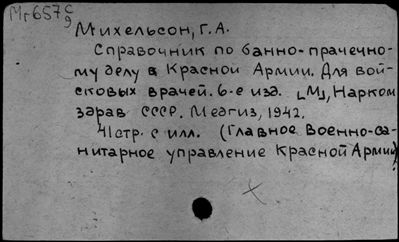 Мг657 с/9
Михельсон, Г.А.
Справочник по банно-прачечно-
му делу в Красной Армии. Для вой-
сковых врачей. 6-е изд. [М], Нарком
здрав СССР. Медгиз, 1942.
41 стр. с илл. (Главное Военно-са-
нитарное управление Красной Армии)